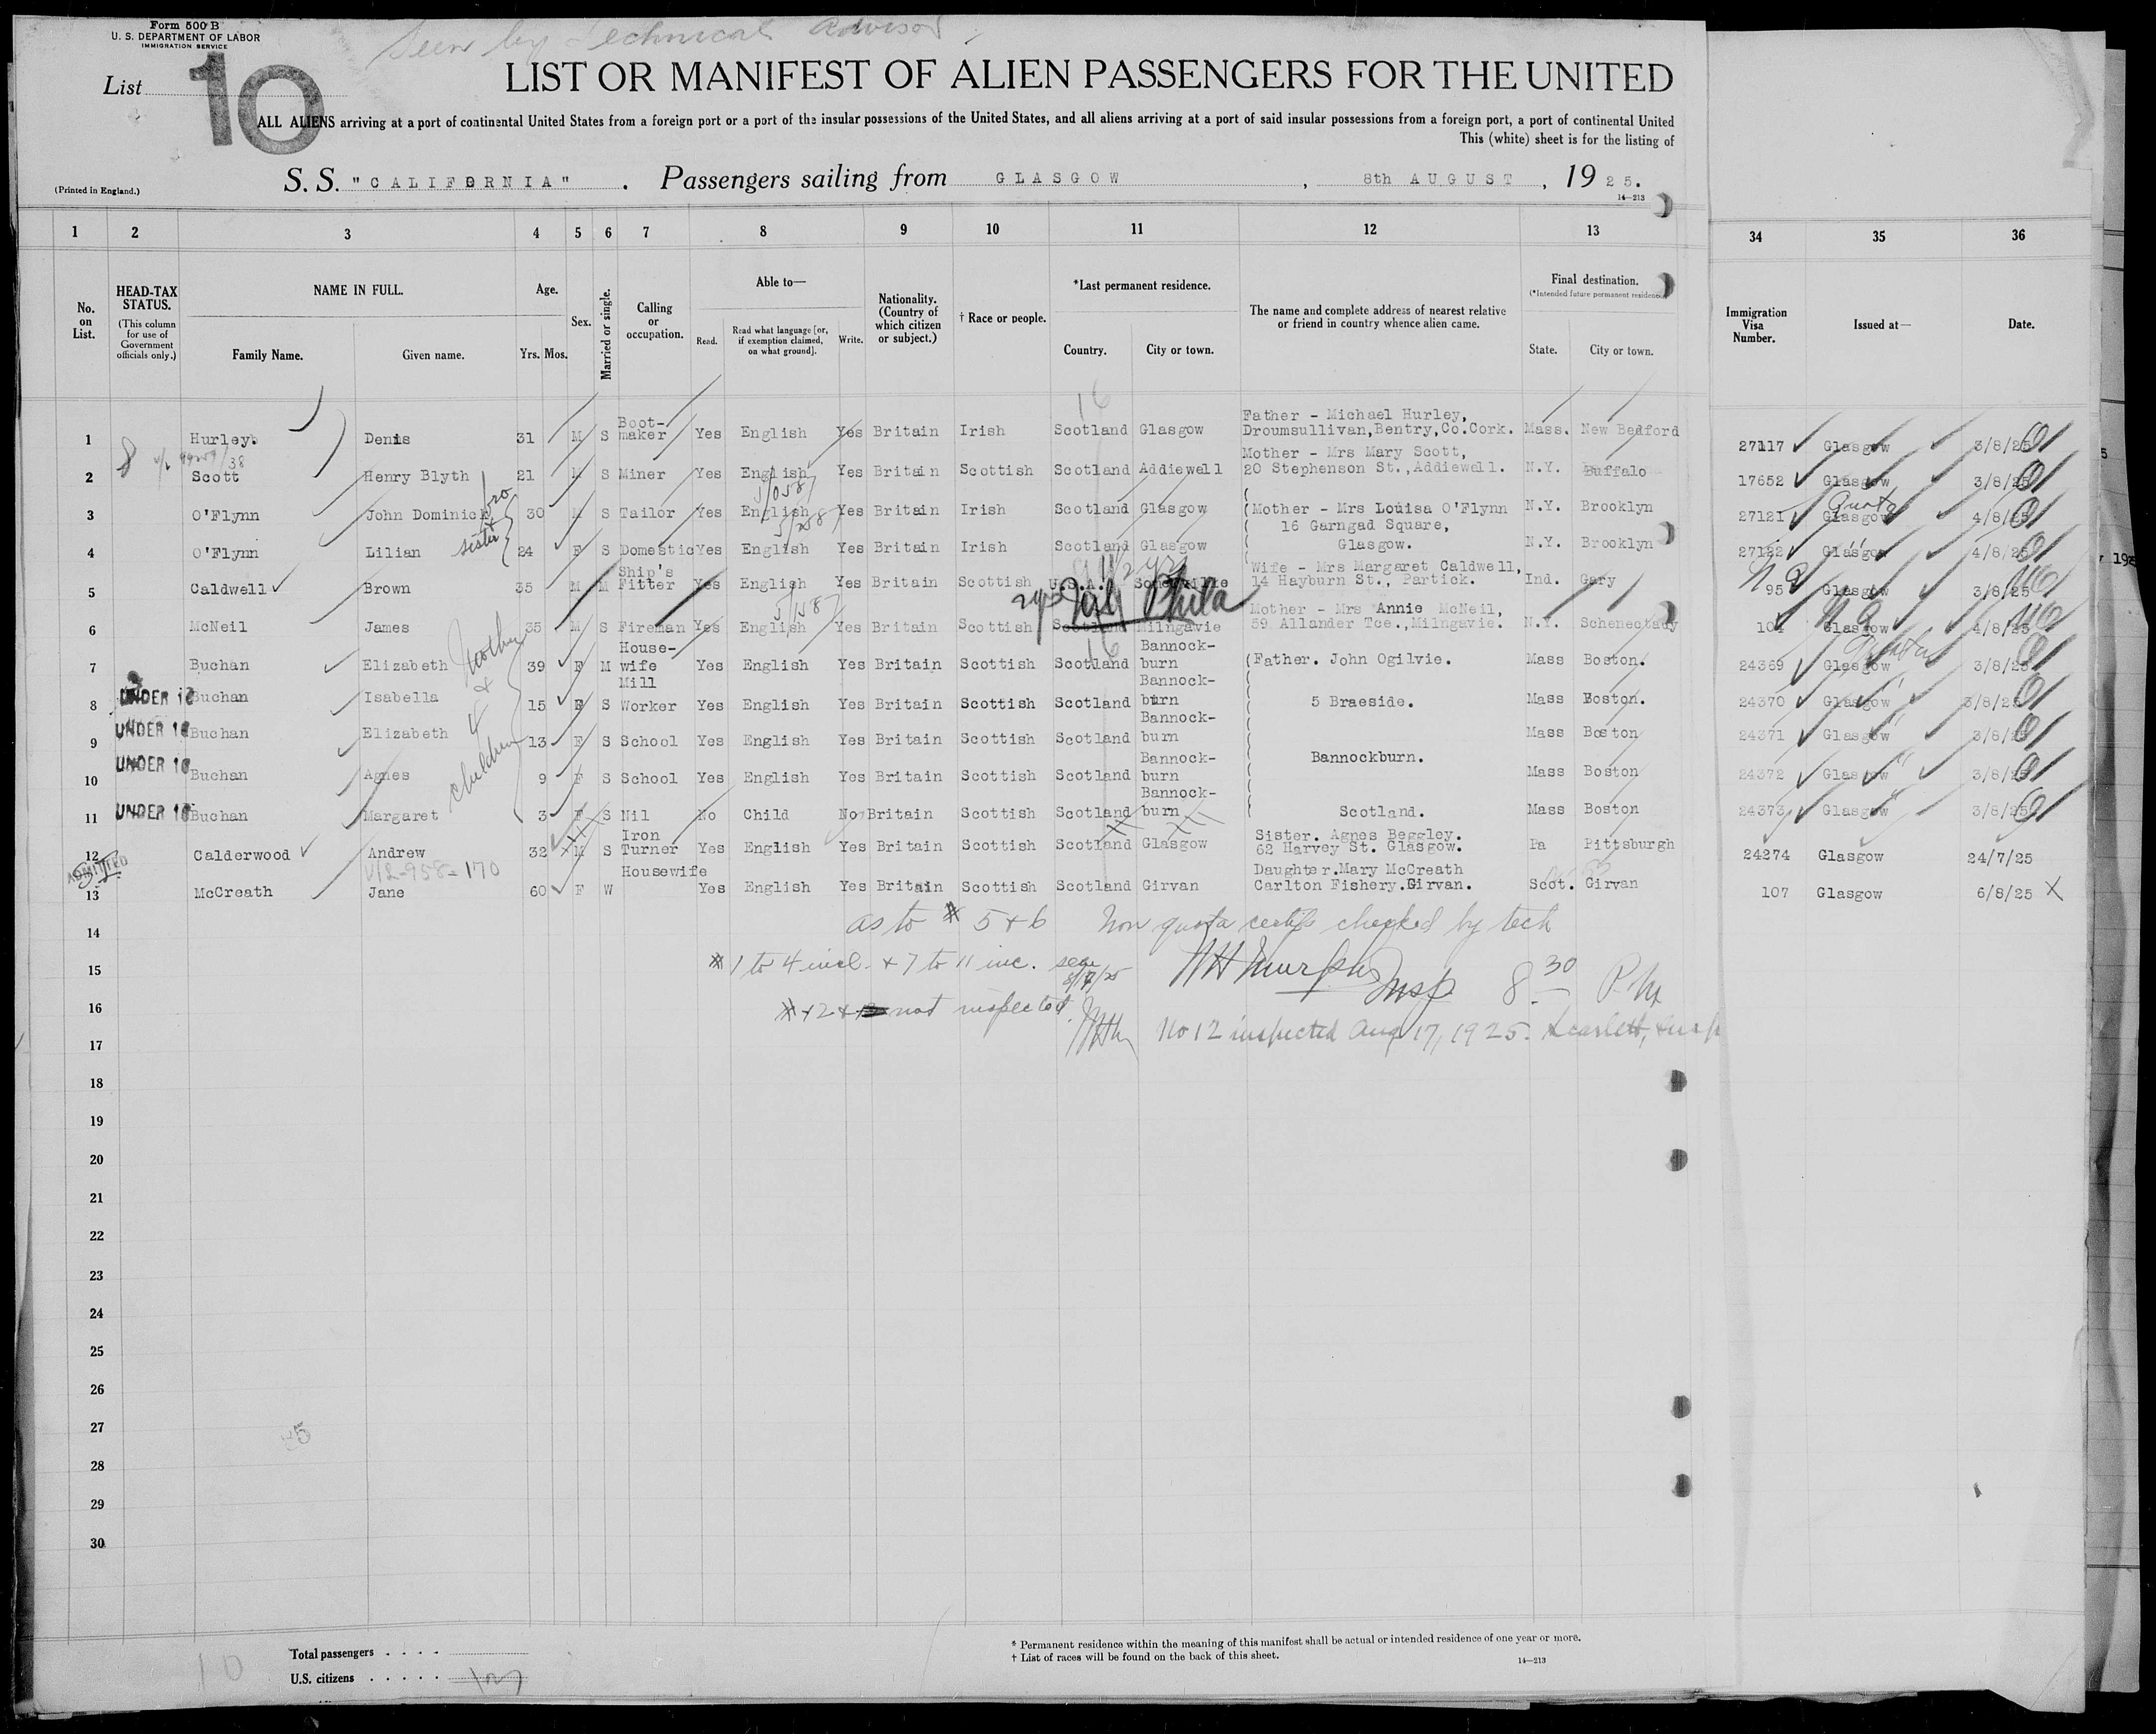 Form 500 B
U. S. DEPARTMENT OF LABOR
IMMIGRATION SERVICE
Seen by Technical Advisor
List 10
LIST OR MANIFEST OF ALIEN PASSENGERS FOR THE UNITED
ALL ALIENS arriving at a port of continental United States from a foreign port or a port of the insular possessions of the United States, and all aliens arriving at a port of said insular possessions from a foreign port, a port of continental United
This (white) sheet is for the listing of
(Printed in England.)
S. S. "CALIFORNIA". Passengers sailing from GLASGOW, 8th AUGUST, 1925.
14—213
1 2 3 4 5 6 7 8 9 10 11 12 13 34 35 36
No. on List.
HEAD-TAX STATUS.
(This column for use of Government officials only.)
NAME IN FULL.
Family Name. Given name.
Age.
Yrs. Mos.
Sex.
Married or single.
Calling or occupation.
Able to—
Read. Read what language [or, if exemption claimed, on what ground]. Write.
Nationality. (Country of which citizen or subject.)
† Race or people.
*Last permanent residence.
Country. City or town.
The name and complete address of nearest relative or friend in country whence alien came.
Final destination.
(*Intended future permanent residence)
State. City or town.
Immigration Visa Number.
Issued at—
Date.
1 Hurley. Denis 31 M S Boot-maker Yes English Yes Britain Irish Scotland Glasgow Father - Michael Hurley, Droumsullivan,Bentry,Co.Cork. Mass. New Bedford 27117 Glasgow 3/8/25
2 Scott Henry Blyth 21 M S Miner Yes English Yes Britain Scottish Scotland Addiewell Mother - Mrs Mary Scott, 20 Stephenson St.,Addiewell. N.Y. Buffalo 17652 Glasgow 3/8/25
3 O'Flynn John Dominick bro 30 M S Tailor Yes English Yes Britain Irish Scotland Glasgow (Mother - Mrs Louisa O'Flynn N.Y. Brooklyn 27121 Glasgow Quota 4/8/25
16 Garngad Square,
4 O'Flynn Lilian sister 24 F S Domestic Yes English Yes Britain Irish Scotland Glasgow Glasgow. N.Y. Brooklyn 27122 Glasgow 4/8/25
5 Caldwell Brown 35 M M Ship's Fitter Yes English Yes Britain Scottish U.S.A. Wife - Mrs Margaret Caldwell, 14 Hayburn St., Partick. Ind. Gary 95 3/8/25
N Y Phila
6 McNeil James 35 M S Fireman Yes English Yes Britain Scottish Scotland Milngavie Mother - Mrs Annie McNeil, 59 Allander Tce.,Milngavie. N.Y. Schenectady 104 Glasgow 4/8/25
7 Buchan Elizabeth 39 F M House-wife Yes English Yes Britain Scottish Scotland Bannock-burn (Father. John Ogilvie. Mass Boston. 24369 Glasgow 3/8/25
mother & 4 children
8 UNDER 16 Buchan Isabella 15 F S Mill Worker Yes English Yes Britain Scottish Scotland Bannock-burn 5 Braeside. Mass Boston. 24370 Glasgow 3/8/25
9 UNDER 16 Buchan Elizabeth 13 F S School Yes English Yes Britain Scottish Scotland Bannock-burn Mass Boston 24371 Glasgow 3/8/25
10 UNDER 16 Buchan Agnes 9 F S School Yes English Yes Britain Scottish Scotland Bannock-burn Bannockburn. Mass Boston 24372 Glasgow 3/8/25
11 UNDER 16 Buchan Margaret 3 F S Nil No Child No Britain Scottish Scotland Bannock-burn Scotland. Mass Boston 24373 Glasgow 3/8/25
12 Calderwood Andrew 32 M S Iron Turner Yes English Yes Britain Scottish Scotland Glasgow Sister. Agnes Beggley. 62 Harvey St. Glasgow. Pa Pittsburgh 24274 Glasgow 24/7/25
ADMITTED
V/2-958-170
13 McCreath Jane 60 F W Housewife Yes English Yes Britain Scottish Scotland Girvan Daughter.Mary McCreath Carlton Fishery.Girvan. Scot. Girvan 107 Glasgow 6/8/25 X
14 as to # 5 & 6 Non quota certifs checked by tech
15 # 1 to 4 incl. & 7 to 11 inc. WH Murphy Insp 8 30 P.M.
16 not inspected.
No 12 inspected Aug 17, 1925. Scarlett, Insp
17
18
19
20
21
22
23
24
25
26
27
28
29
30
Total passengers . . . .
U.S. citizens . . . . .
10
* Permanent residence within the meaning of this manifest shall be actual or intended residence of one year or more.
† List of races will be found on the back of this sheet.
14—213